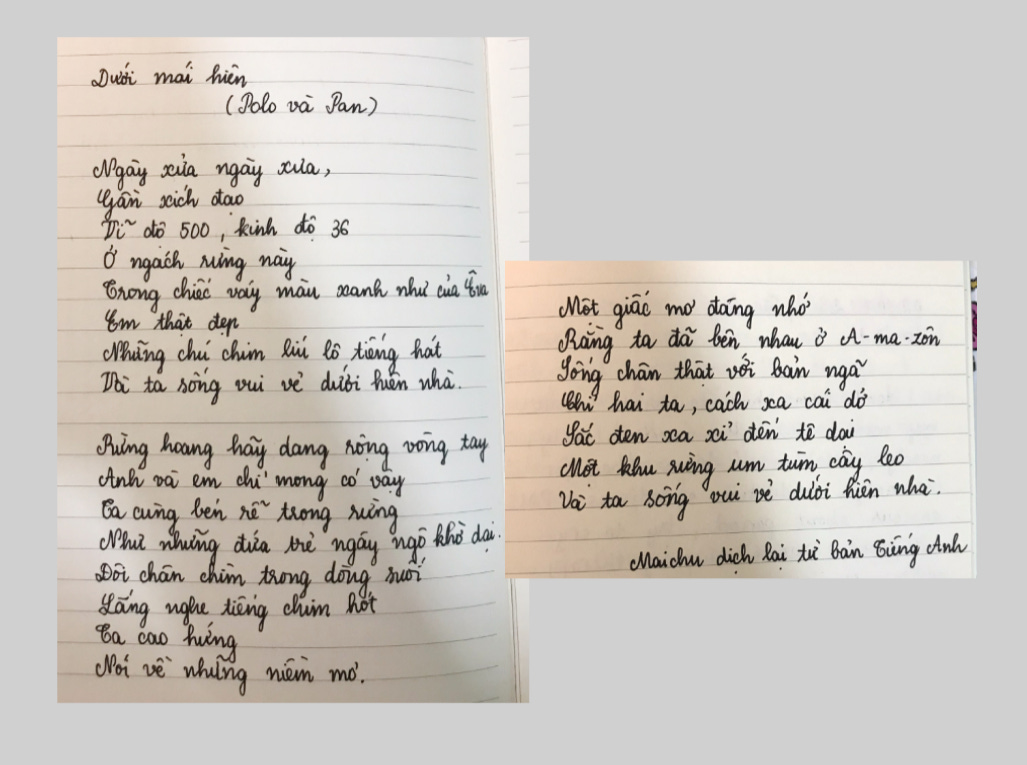 Dưới mái hiên
(Polo và Pan)
Ngày xửa ngày xưa,
Gần xích đạo
Vĩ độ 500, kinh độ 36
Ở ngách rừng này
Trong chiếc váy màu xanh như của Êva
Em thật đẹp
Những chú chim líu lô tiếng hát
Và ta sống vui vẻ dưới hiên nhà.
Rừng hoang hãy dang rộng vòng tay
Anh và em chỉ mong có vậy
Ta cùng bén rễ trong rừng
Như những đứa trẻ ngây ngô khờ dại.
Đôi chân chìm trong dòng suối
Lắng nghe tiếng chim hót
Ta cao hứng
Nói về những niềm mơ.
Một giấc mơ đáng nhớ
Rằng ta đã bên nhau ở A-ma-zôn
Sống chân thật với bản ngã
Chỉ hai ta, cách xa cái dở
Sắc đen xa xỉ đến tê dại
Một khu rừng um tùm cây leo
Và ta sống vui vẻ dưới hiên nhà.
Maichu dịch lại từ bản Tiếng Anh